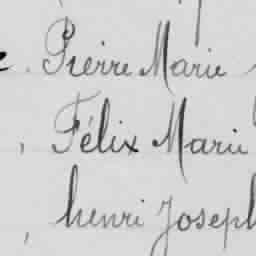 Pierre Marie
, Félix Marie
, henri Joseph